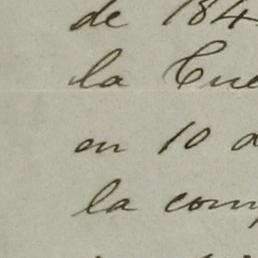 de 184
la Cue
en 10 d
la com